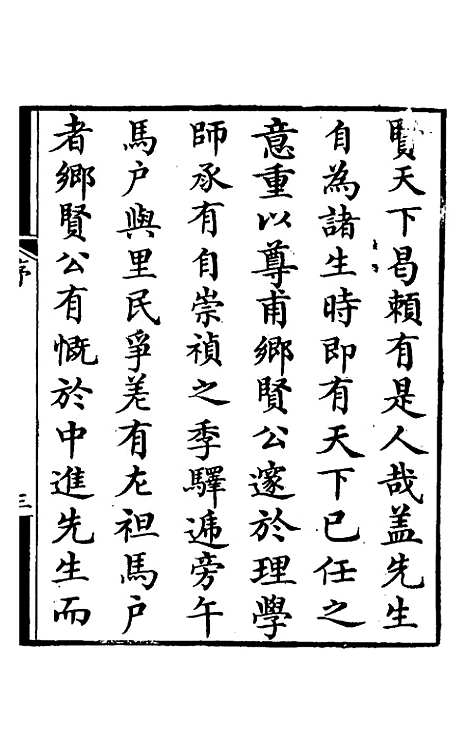 賢天下曷頼有是人哉盖先生
自為諸生時即有天下已任之
意重以尊甫鄉賢公邃於理學
師承有自崇禎之季驛遞旁午
馬户與里民爭差有左袒馬户
者鄉賢公有慨於中進先生而
序
三